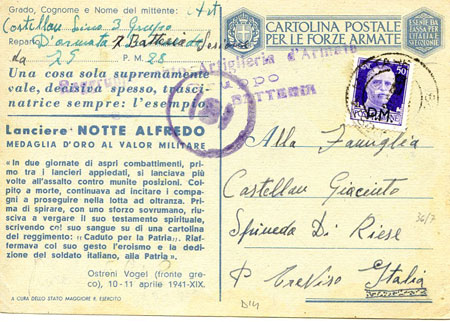 Grado, Cognome e Nome del mittente: Art
Castellan Gino 3 Gruppo
Reparto D'armata 7 Batteria
da 75 P. M. 28
Una cosa sola supremamente
vale, decisiva spesso, trasci-
natrice sempre: l'esempio.
Lanciere NOTTE ALFREDO
MEDAGLIA D'ORO AL VALOR MILITARE
« In due giornate di aspri combattimenti, pri-
mo tra i lancieri appiedati, si lanciava più
volte all'assalto contro munite posizioni. Col-
pito a morte, continuava ad incitare i compa-
gni a proseguire nella lotta ad oltranza. Pri-
ma di spirare, con uno sforzo sovrumano, riu-
sciva a vergare il suo testamento spirituale,
scrivendo col suo sangue su di una cartolina
del reggimento: « Caduto per la Patria ». Riaf-
fermava col suo gesto l'eroismo e la dedi-
zione del soldato italiano, alla Patria ».
Ostreni Vogel (fronte gre-
co), 10 - 11 aprile 1941-XIX.
A CURA DELLO STATO MAGGIORE R. ESERCITO
CARTOLINA POSTALE
PER LE FORZE ARMATE
Artiglieria d'Armata
BATTERIA
50
P.M.
Alla Famiglia
Castellan Giacinto
Spineda Di Riese
P Treviso Italia